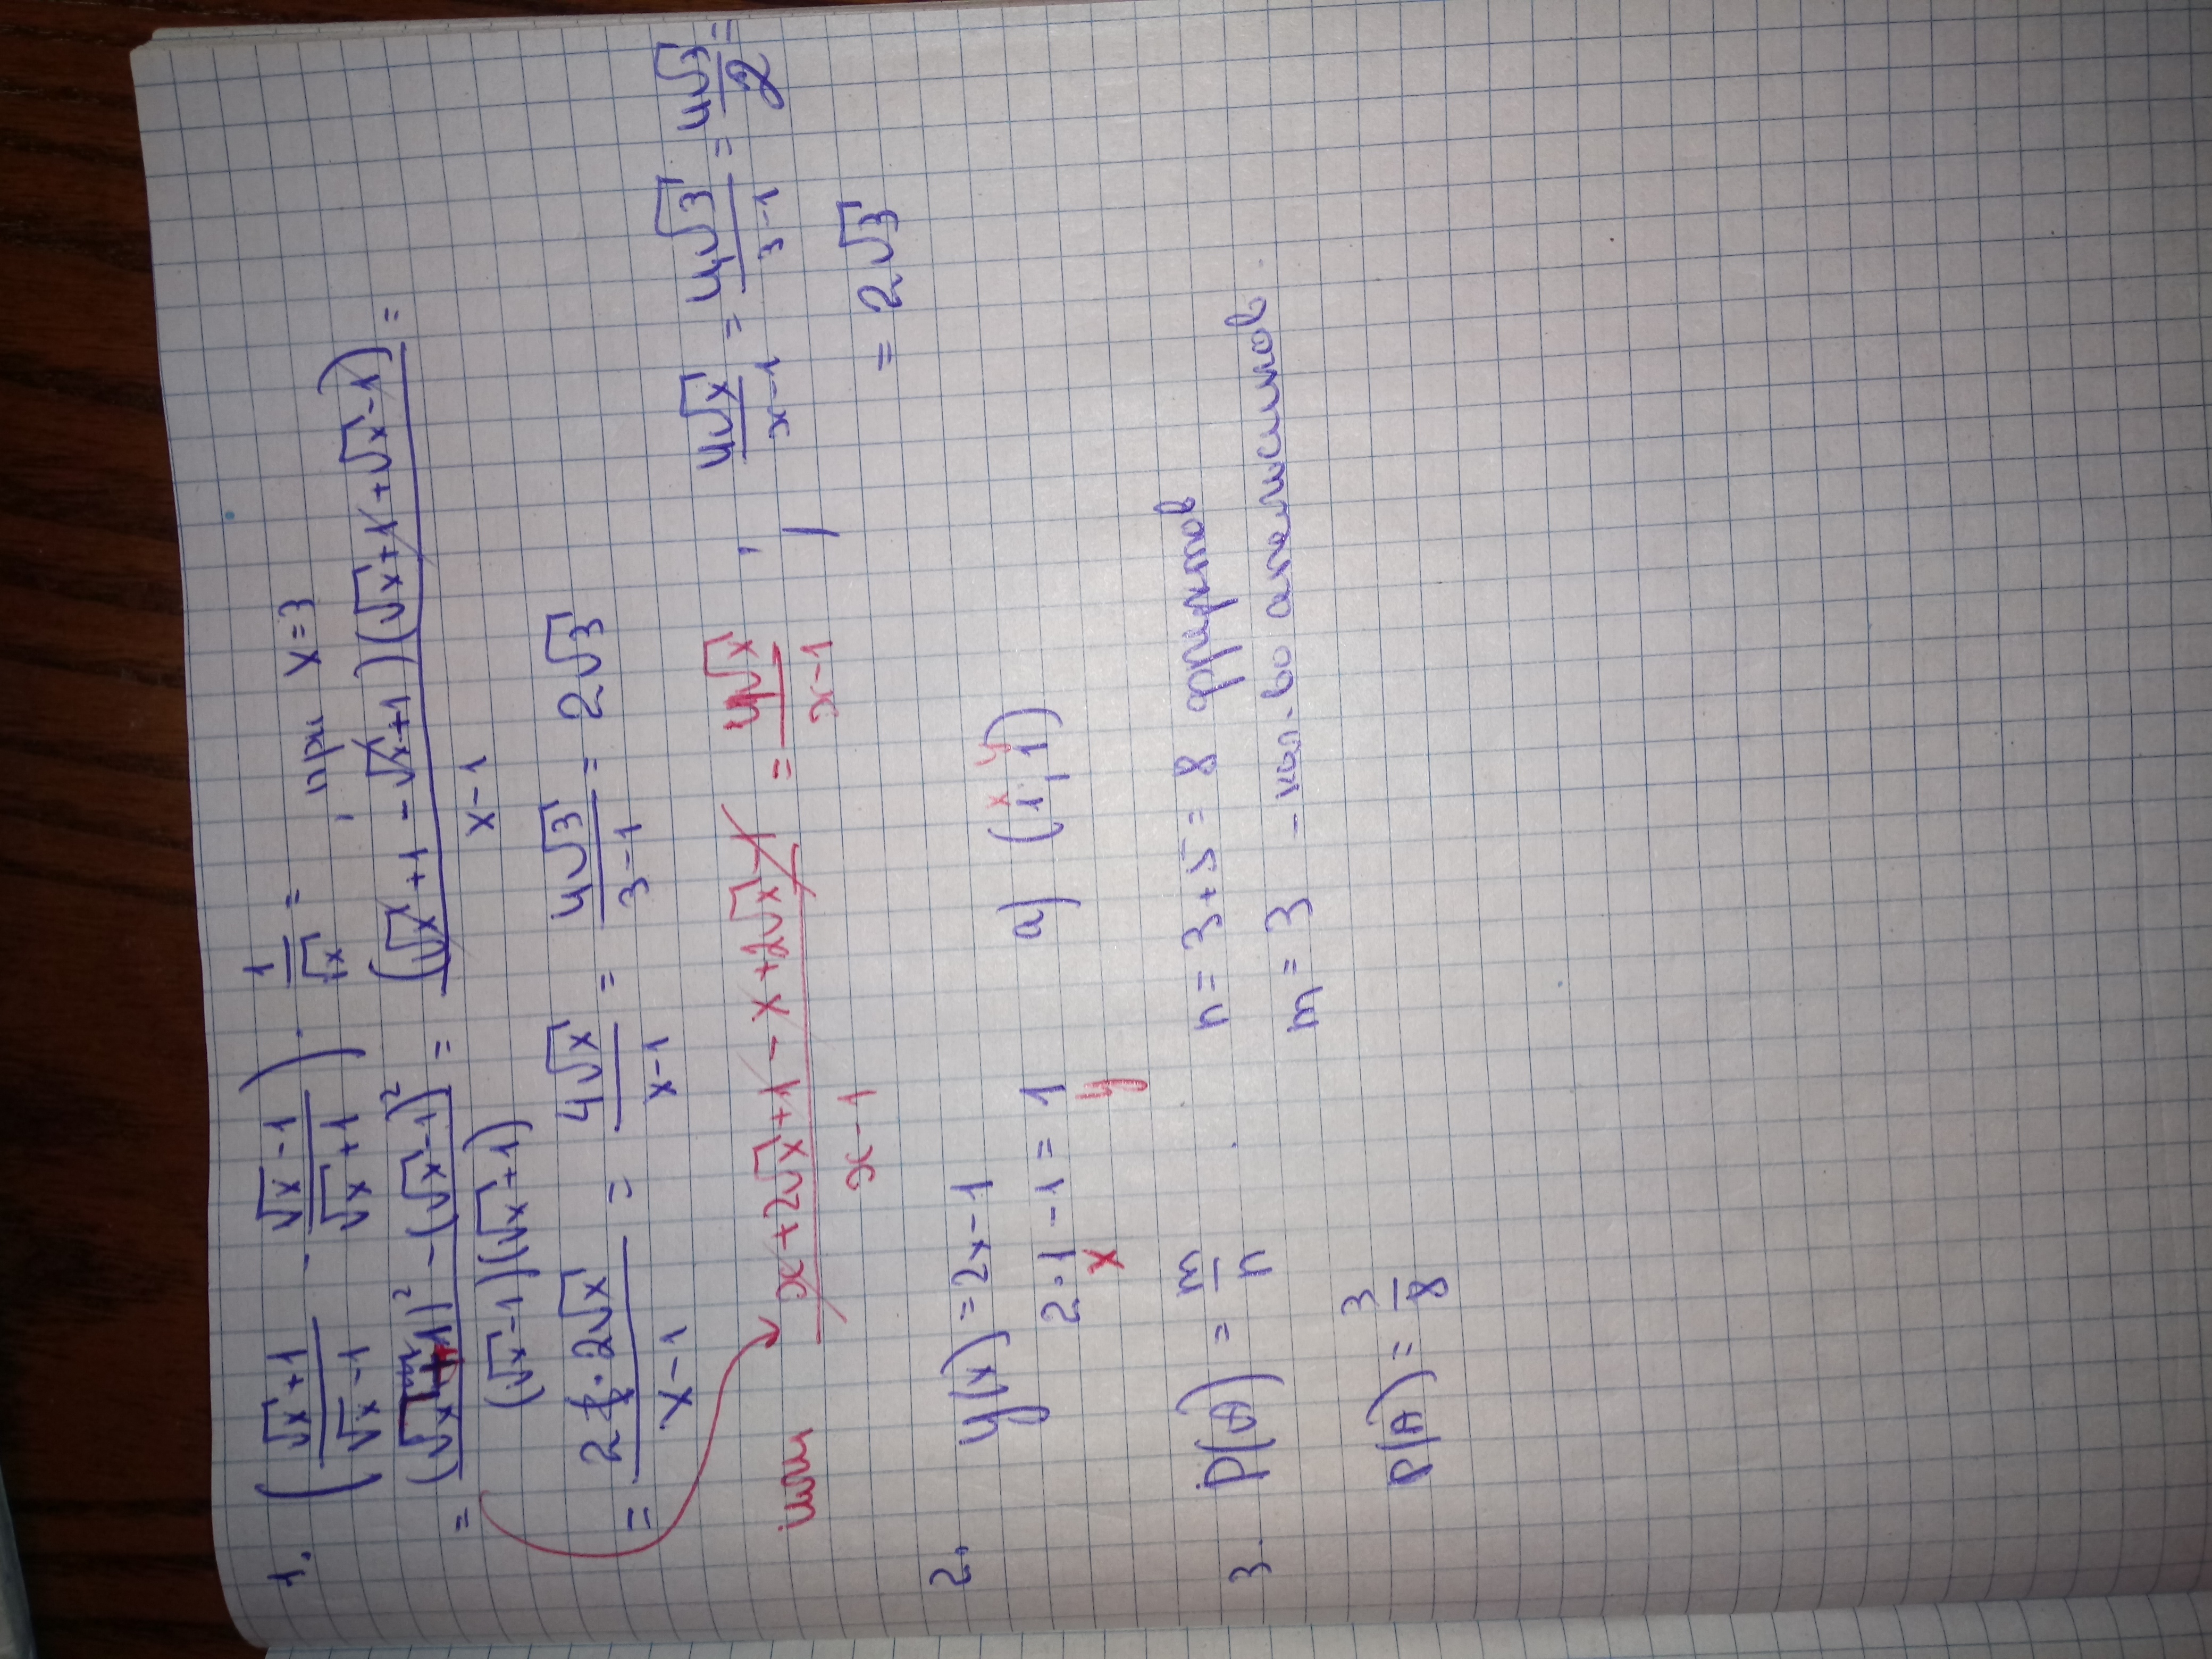 1. ( (√x+1)/(√x-1) - (√x-1)/(√x+1) ) · 1/√x = , при x=3
= ((√x+1)² - (√x-1)²)/((√x-1)(√x+1)) = ((√x+1-√x+1)(√x+1+√x-1))/(x-1) =
= (2 · 2√x)/(x-1) = 4√x/(x-1) = 4√3/(3-1) = 2√3
или (x+2√x+1-x+2√x-1)/(x-1) = 4√x/(x-1) , 4√x/(x-1) = 4√3/(3-1) = 4√3/2 =
= 2√3
2. y(x) = 2x-1 a) (1, 1)
x y
2·1-1=1
x y
3. P(A) = m/n n=3+5=8 фруктов
m=3 - кол-во апельсинов.
P(A) = 3/8